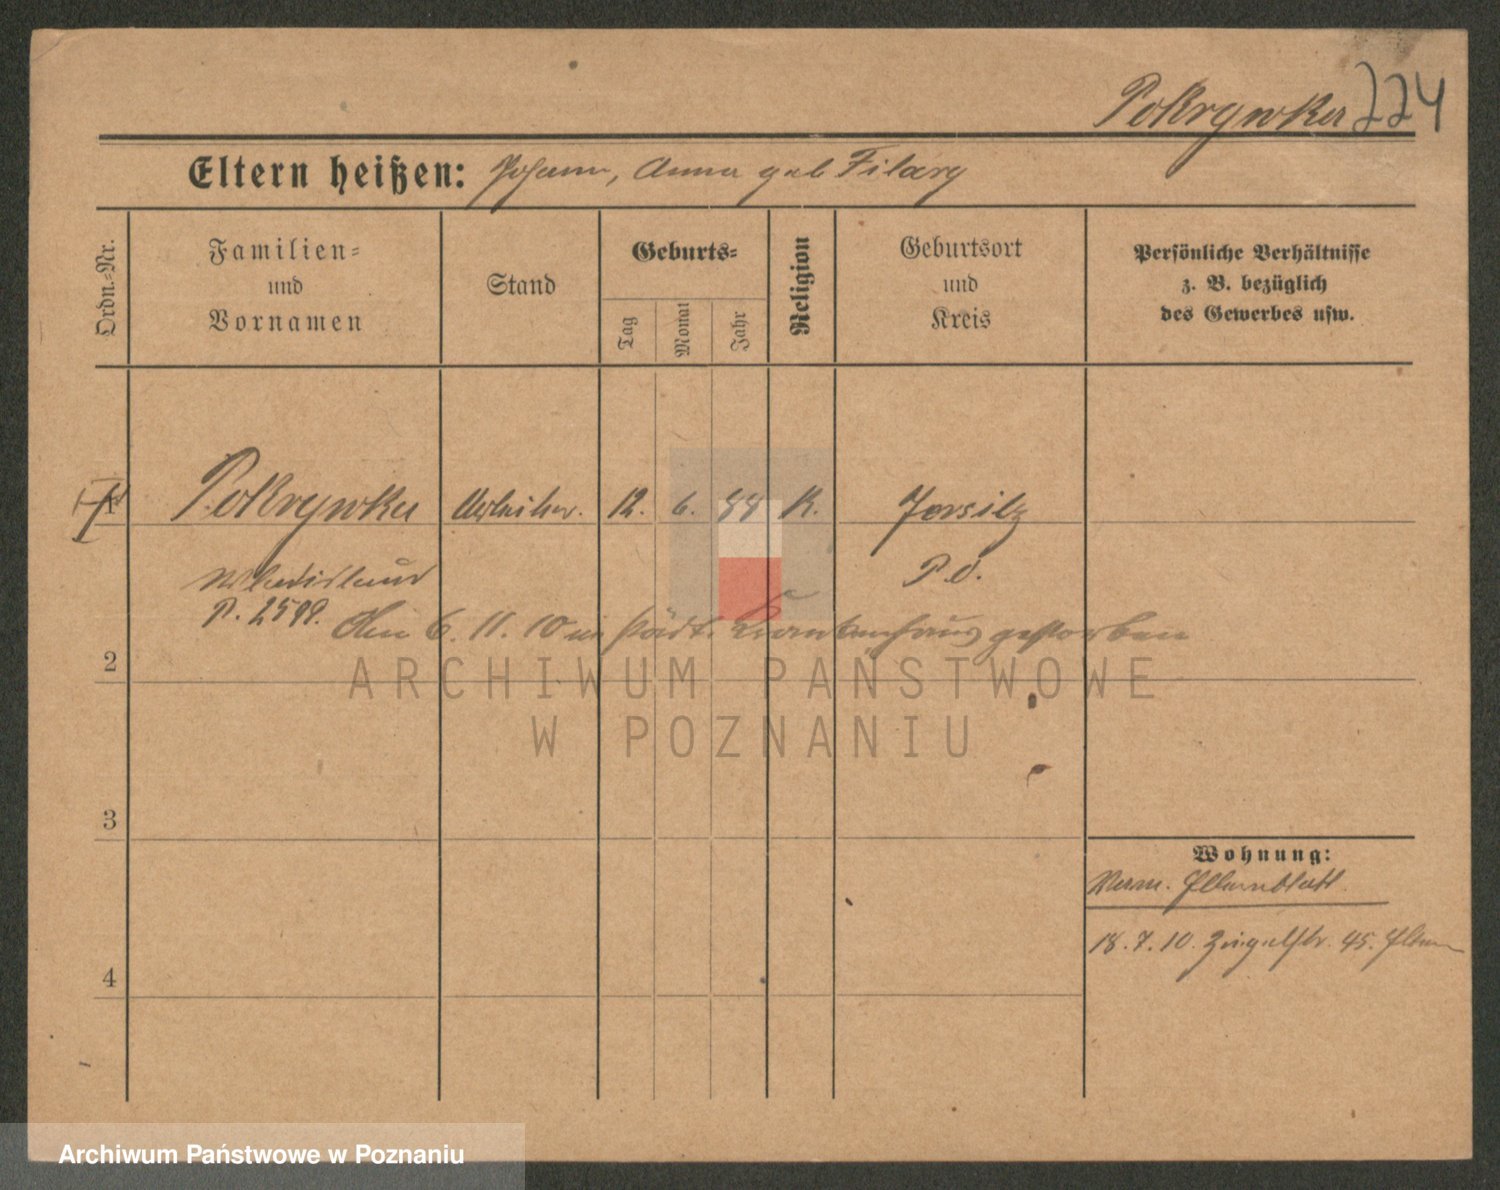 Pokrywka 224
Eltern heißen: Johann, Anna geb Filary
Ordn.-Nr.
Familien-
und
Vornamen
Stand
Geburts-
Tag
Monat
Jahr
Religion
Geburtsort
und
Kreis
Persönliche Verhältnisse
z. B. bezüglich
des Gewerbes usw.
1 Pokrywka Arbeiter. 12. 6. 88 K. Jersitz
Wladislaus P. O.
P. 2598.
Am 6. 11. 10 im städt. Krankenhaus gestorben
2
ARCHIWUM PAŃSTWOWE
W POZNANIU
3
Wohnung:
Verm. Elternblatt.
4
18. 7. 10. Ziegelstr. 45. Eltern
Archiwum Państwowe w Poznaniu